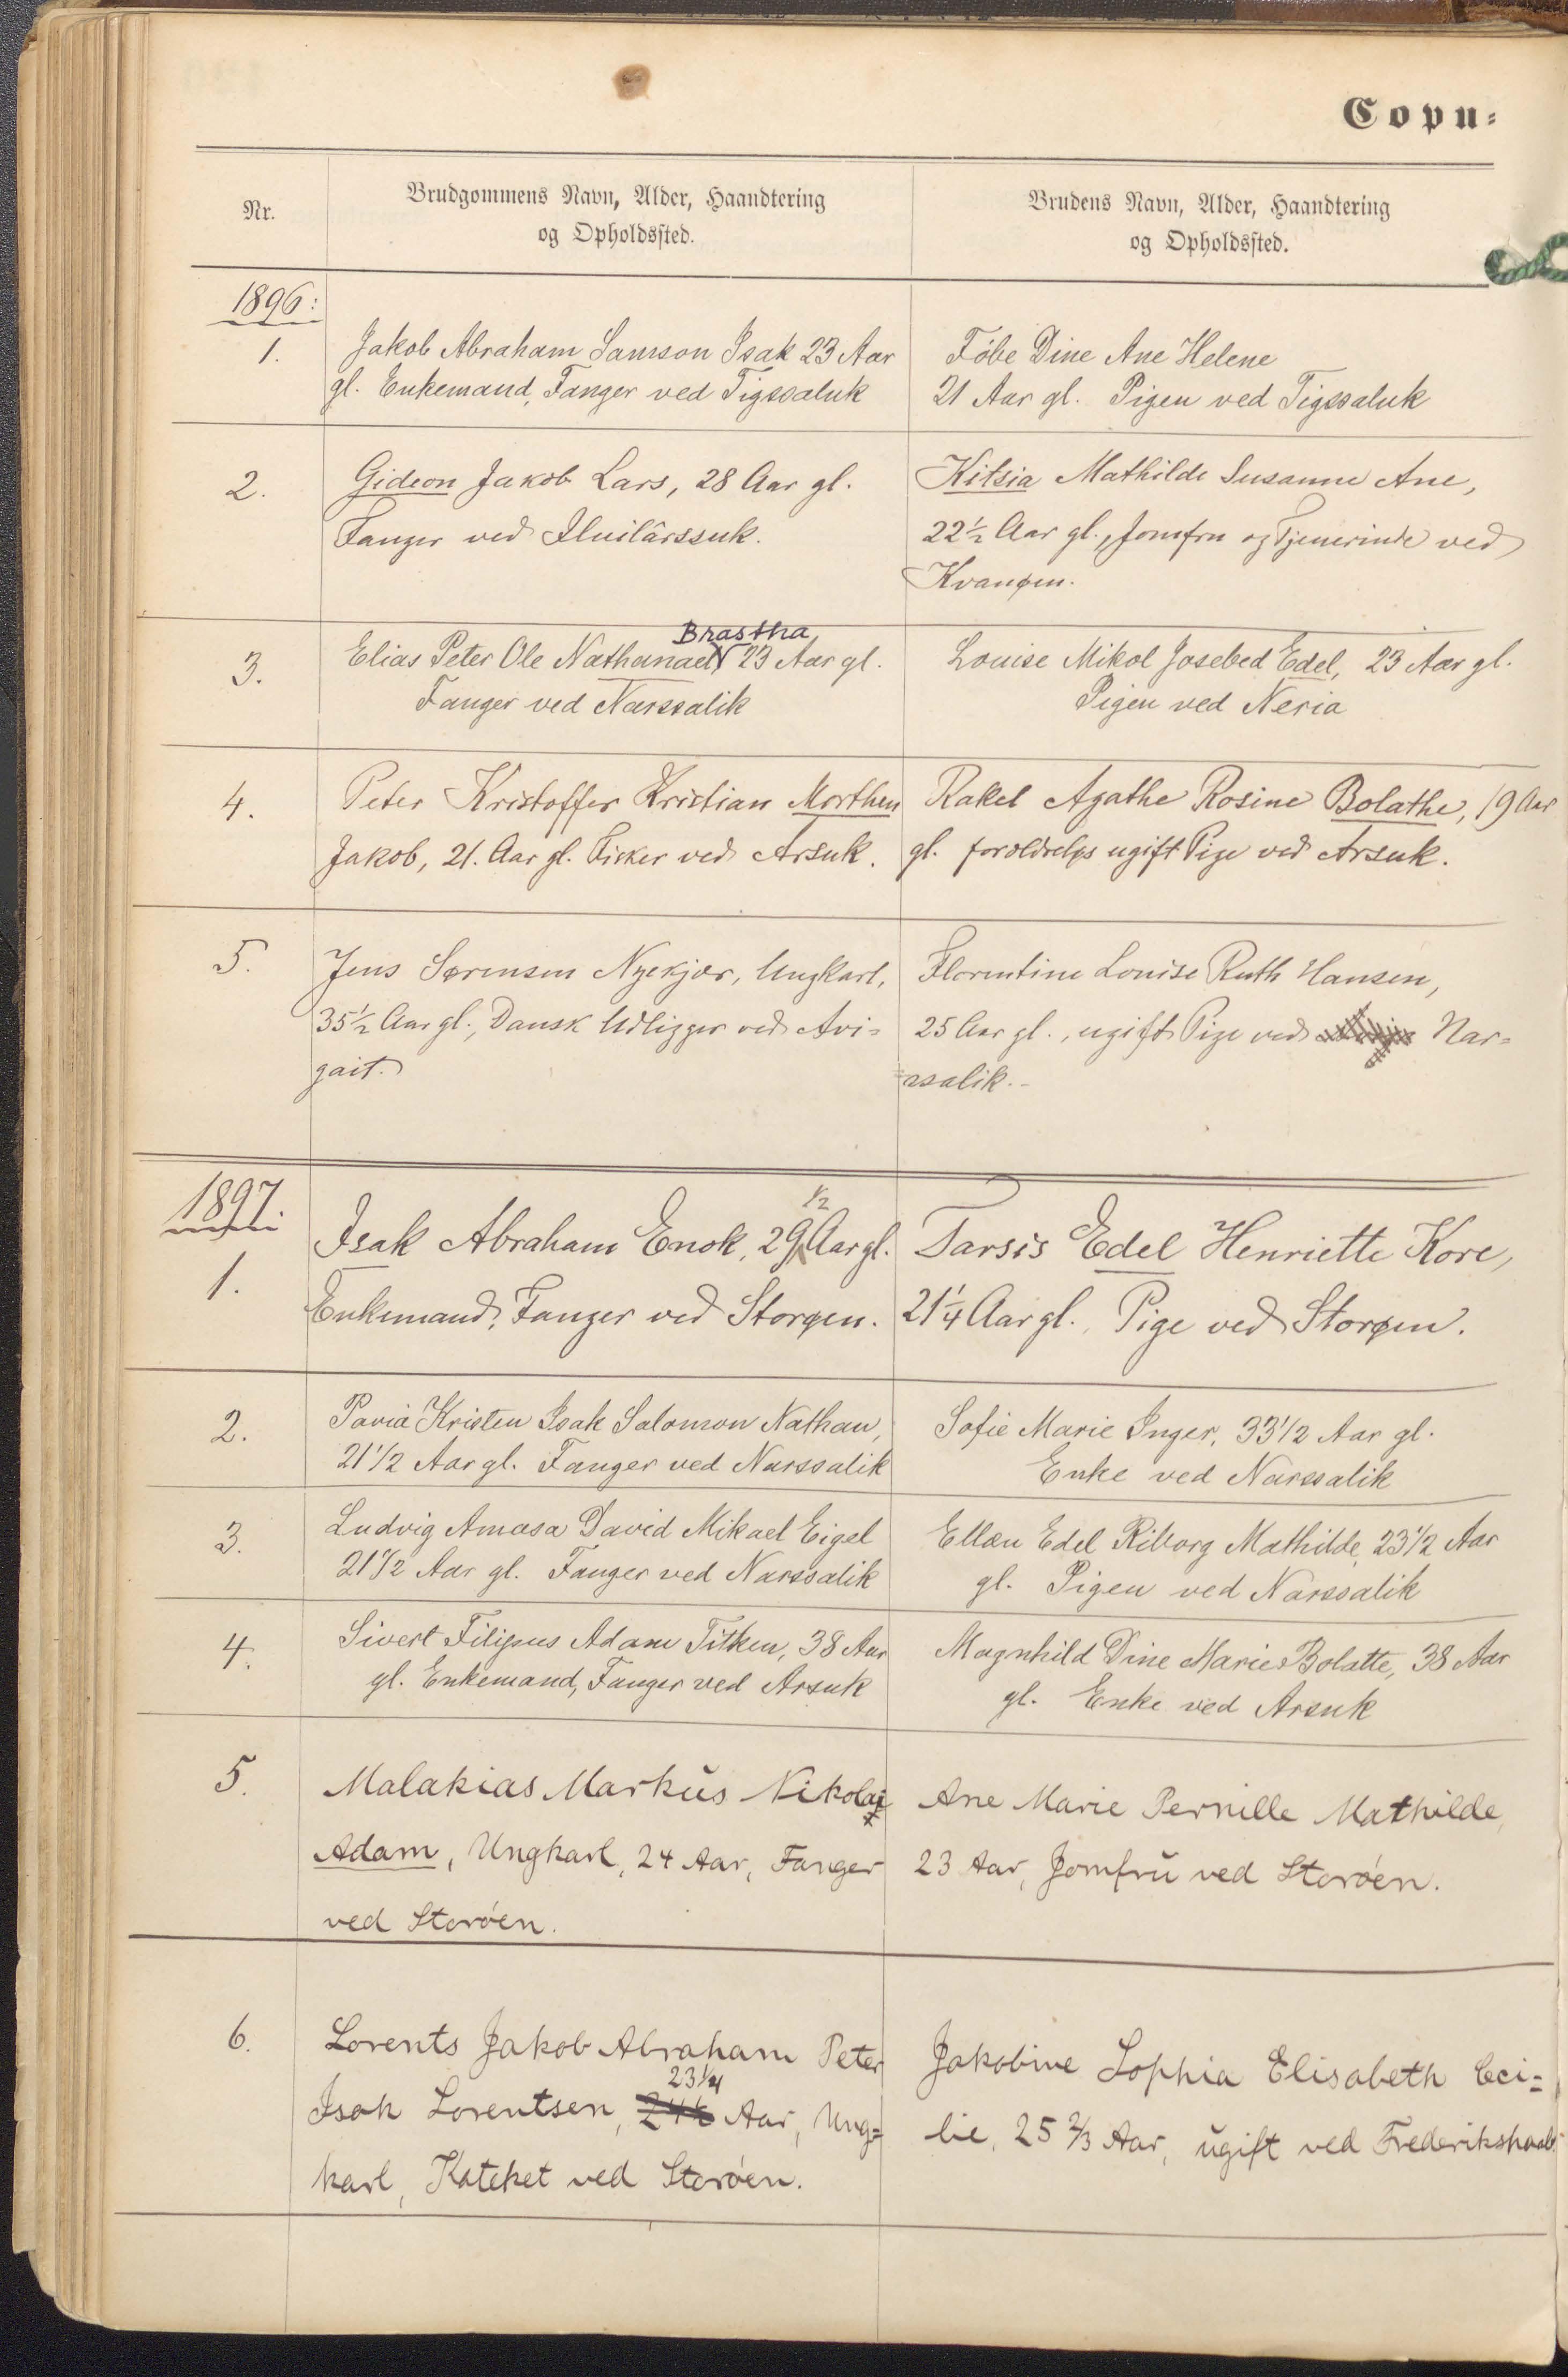 Copu-
Nr.
Brudgommens Navn, Alder, Haandtering
og Opholdssted.
Brudens Navn, Alder, Haandtering
og Opholdssted.
1896:
1.
Jakob Abraham Samson Isak 23 Aar
gl. Enkemand, Fanger ved Tigssaluk
Föbe Dine Ane Helene
21 Aar gl. Pigen ved Tigssaluk
2.
Gideon Jakob Lars, 28 Aar gl.
Fanger ved Iluilârssuk.
Kitsia Mathilde Susanne Ane,
22½ Aar gl., Jomfru og Tjenerinde ved
Kvanøen.
3.
Brastha
Elias Peter Ole Nathanael 23 Aar gl.
Fanger ved Narssalik
Louise Mikol Josebed Edel, 23 Aar gl.
Pigen ved Neria
4.
Peter Kristoffer Kristian Morthen
Jakob, 21. Aar gl. Fisker ved Arsuk.
Rakel Agathe Rosine Bolathe, 19 Aar
gl. forældreløs ugift Pige ved Arsuk.
5.
Jens Sørensen Nyekjær, Ungkarl,
35½ Aar gl., Dansk Udligger ved Avi=
gait.
Florentine Louise Ruth Hansen,
25 Aar gl., ugift Pige ved Nar=
=ssalik.-
1897.
1.
½
Isak Abraham Enok, 29 Aar gl.
Enkemand, Fanger ved Storøen.
Tarsis Edel Henriette Kore,
21¼ Aar gl., Pige ved Storøen.
2.
Pavia Kristen Isak Salomon Nathan,
21 1/2 Aar gl. Fanger ved Narssalik
Sofie Marie Inger, 33 1/2 Aar gl.
Enke ved Narssalik
3.
Ludvig Amasa David Mikael Eigel
21 1/2 Aar gl. Fanger ved Narssalik
Ellen Edel Riborg Mathilde, 23 1/2 Aar
gl. Pigen ved Narssalik
4.
Sivert Filipus Adam Titken, 38 Aar
gl. Enkemand, Fanger ved Arsuk
Magnhild Dine Marie Bolatte, 38 Aar
gl. Enke ved Arsuk
5.
Malakias Markus Nikolai
Adam, Ungkarl, 24 Aar, Fanger
ved Storöen.
Ane Marie Pernille Mathilde,
23 Aar, Jomfru ved Storöen.
6.
Lorents Jakob Abraham Peter
23 1/4
Isak Lorentsen, Aar, Ung=
karl, Kateket ved Storöen.
Jakobine Sophia Elisabeth Ceci=
lie, 25 2/3 Aar, ugift ved Frederikshaab